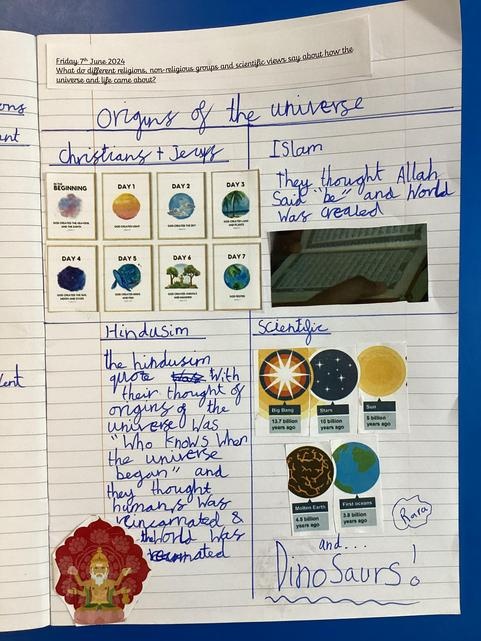 Friday 7th June 2024
What do different religions, non-religious groups and scientific views say about how the
universe and life came about?
ons
nt
lent
origins of the universe
Christians + Jews
IN THE
BEGINNING
GOD CREATED THE HEAVENS
AND THE EARTH
DAY 1
GOD CREATED LIGHT
DAY 2
GOD CREATED THE SKY
DAY 3
GOD CREATED LAND
AND PLANTS
DAY 4
GOD CREATED THE SUN,
MOON AND STARS
DAY 5
GOD CREATED BIRDS
AND FISH
DAY 6
GOD CREATED ANIMALS
AND MANKIND
DAY 7
GOD RESTED
Islam
They thought Allah
Said "be" and World
was created
Hindusim
the hindusim
quote was with
their thought of
origins of the
universe was
"Who knows when
the universe
began" and
they thought
humans was
reincarnated &
the world was
Scientific
Big Bang
13.7 billion
years ago
Stars
10 billion
years ago
Sun
5 billion
years ago
Molten Earth
4.5 billion
years ago
First oceans
3.8 billion
years ago
Rara
and...
Dinosaurs!